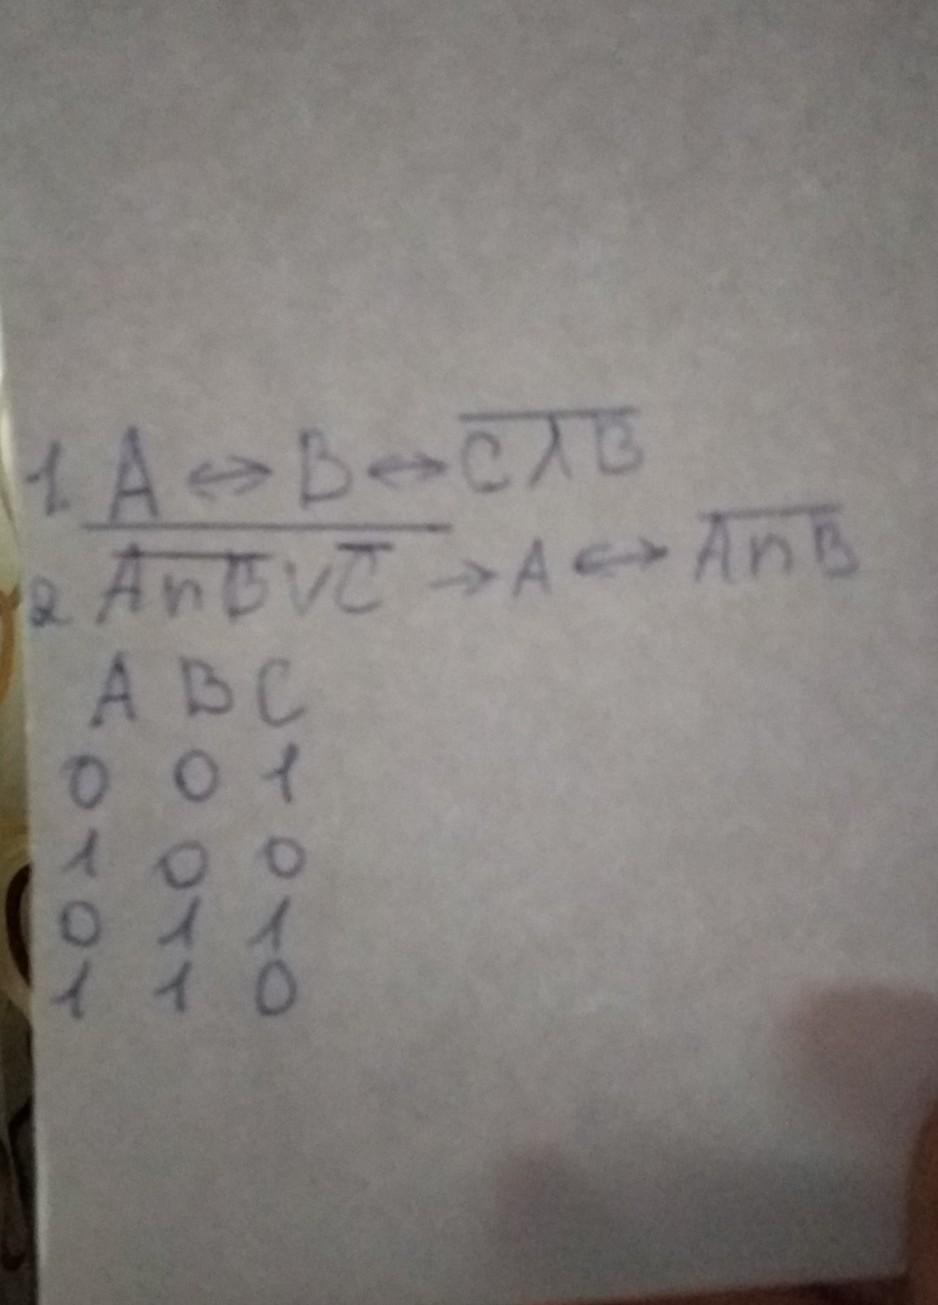 1. A ↔ B ↔ \overline{C ∧ B}
2 \overline{\overline{A п B} ∨ \overline{C}} → A ↔ \overline{A п B}
A B C
0 0 1
1 0 0
0 1 1
1 1 0